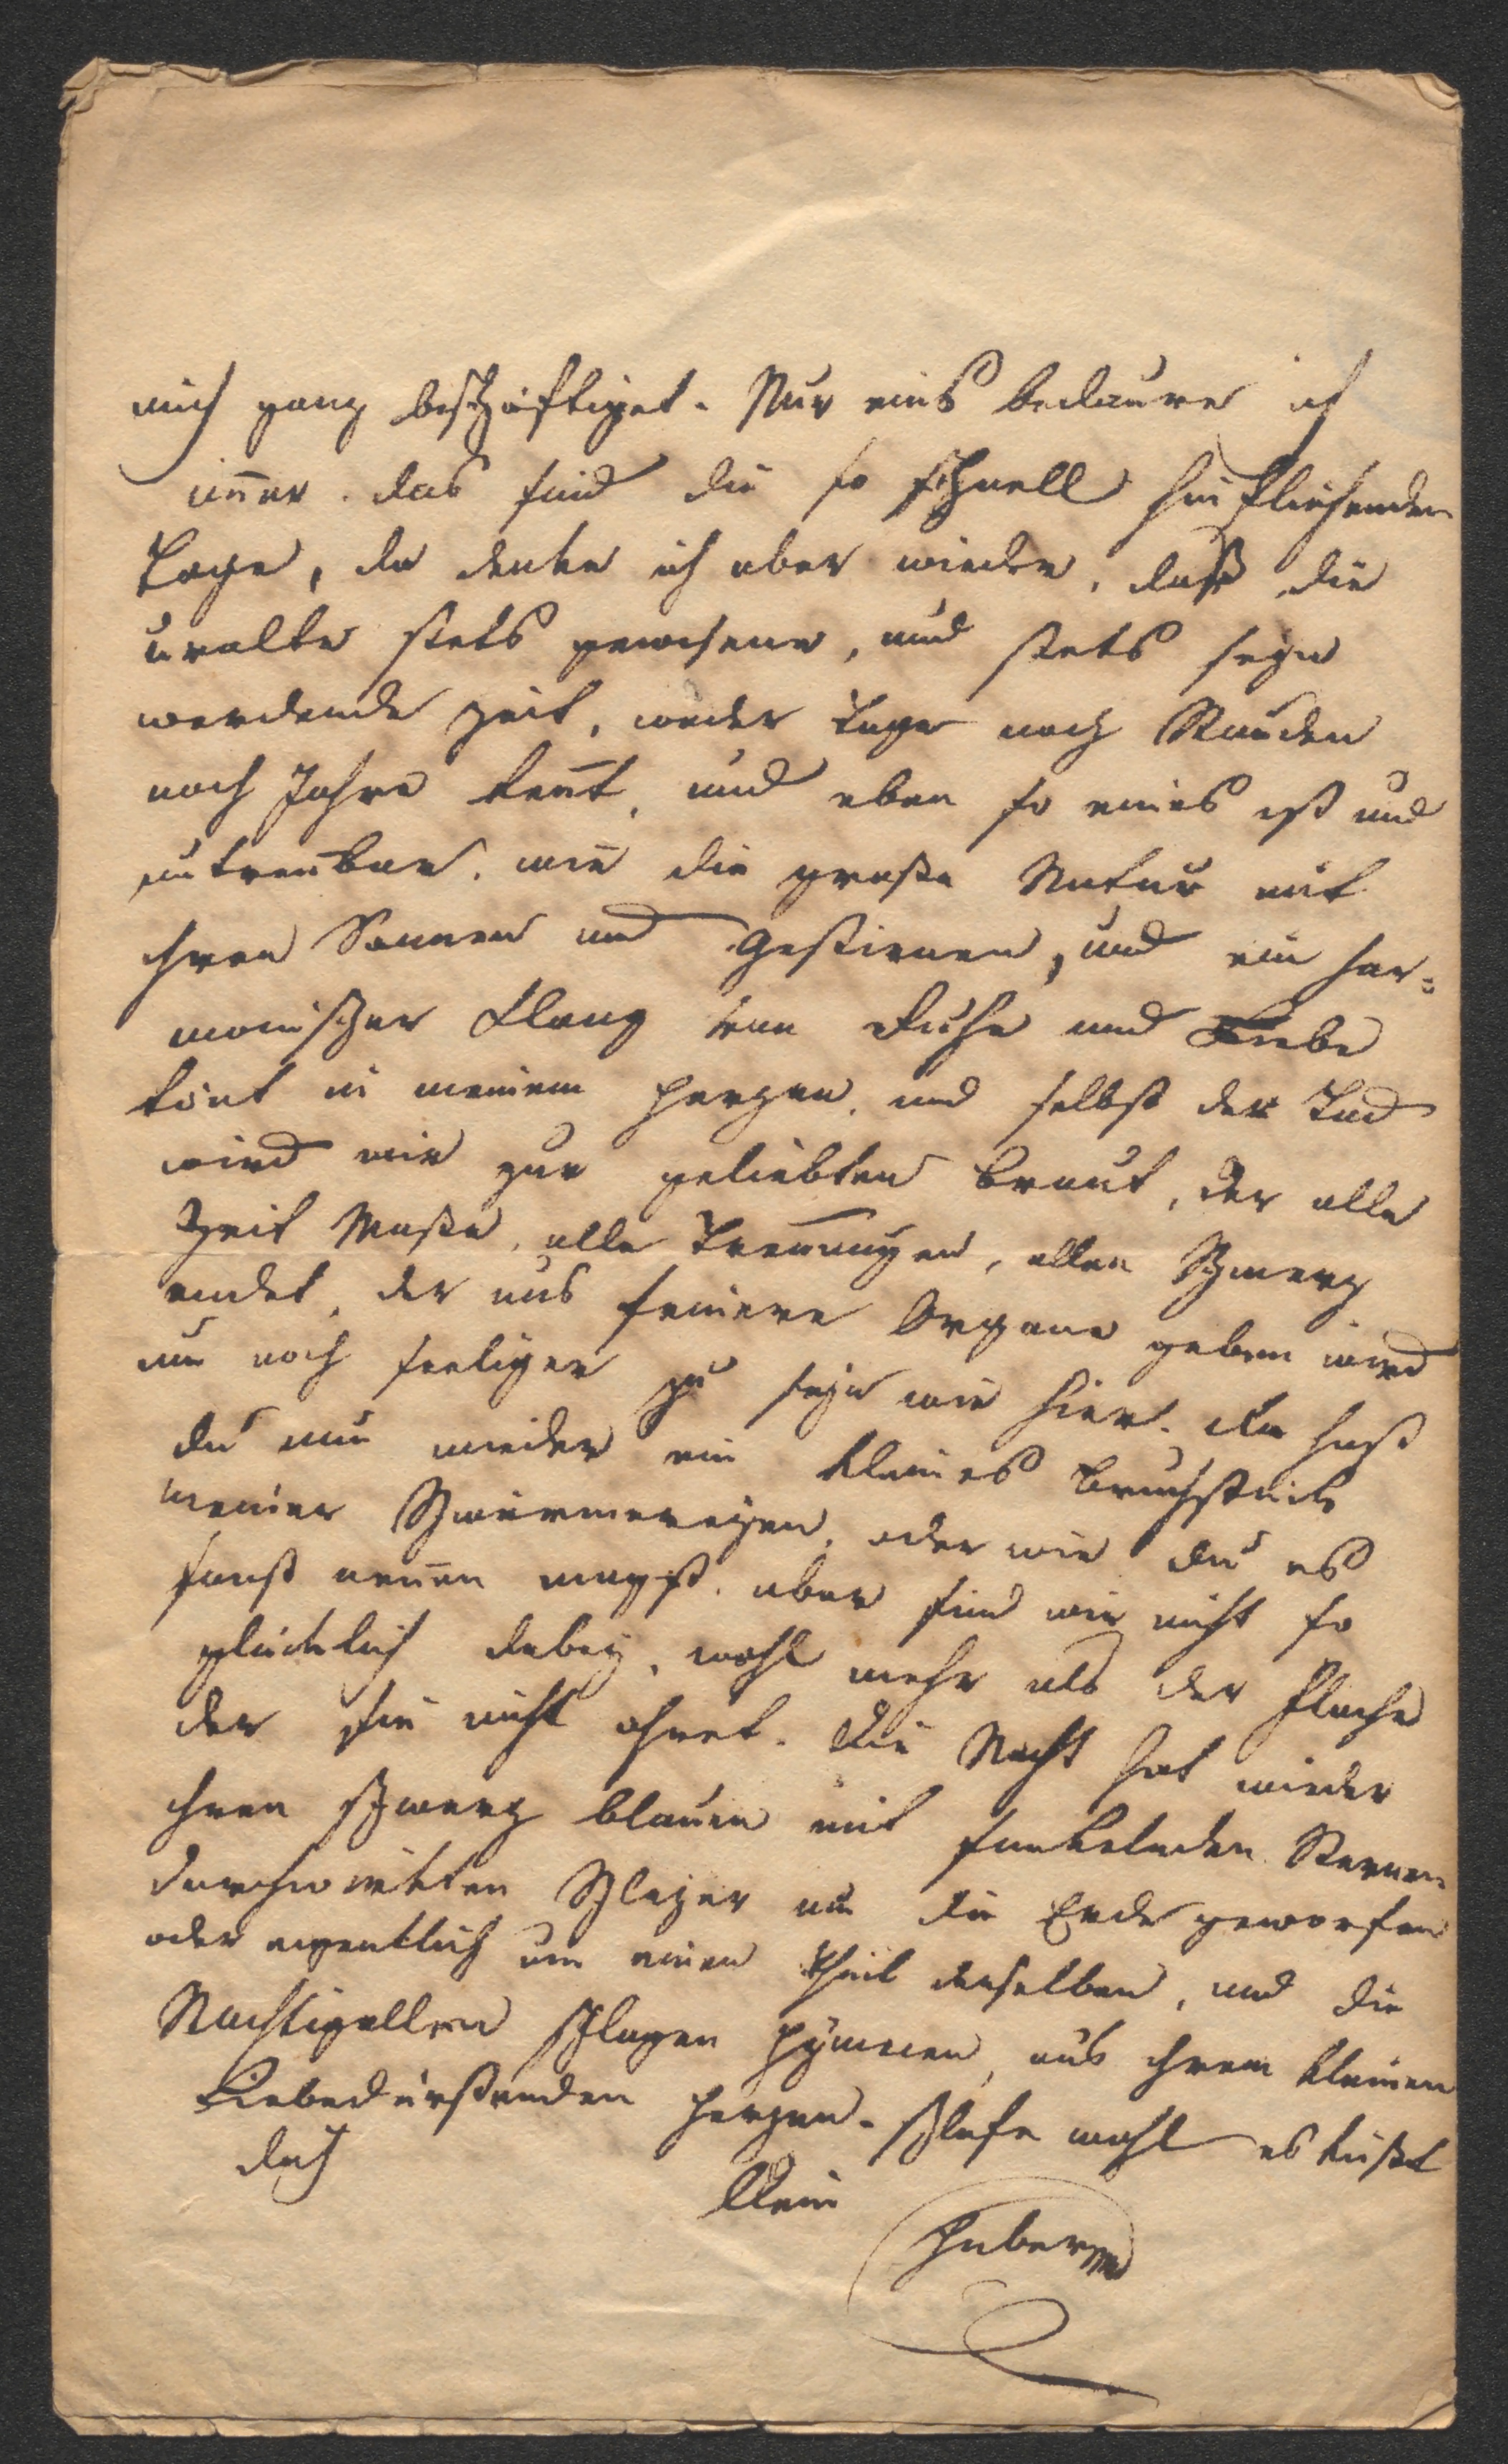 mich ganz beschäftiget. Nur eins bedaure ich
im̄er. das sind die so schnell hinfliehenden
Tage, da denke ich aber wieder, daß die
uralte stets gewesene, und stets seyn
werdende Zeit, weder Tage noch Stunden
noch Jahre ken̄t, und eben so eines ist und
untren̄bar, wie die große Natur mit
ihren Sonnen und Gestirnen, und ein har=
monischer Klang von Ruhe und Liebe
tönt in meinem Herzen, und selbst der Tod
wird mir zur geliebten Braut, der alle
Zeit Maße, alle Tren̄ungen, allen Schmerz
endet, der uns feinere Organe geben wird
um noch seeliger zu seyn wie hier. Da hast
du nun wieder ein kleines Bruchstück
meiner Schwärmereyen, oder wie du es
sonst nen̄en magst. aber sind wir nicht so
glücklich dabey, wohl mehr als der flache
der sie nicht ahnet. Die Nacht hat wieder
ihren schwarz blauen mit funkelnden Sternen
durchwirkten Schleyer um die Erde geworfen
oder eigentlich um einen Theil derselben, und die
Nachtigallen schlagen Hymnen, aus ihrem kleinen
Liebedürstenden Herzen. schlafe wohl es küßt
dich
Dein
Huber